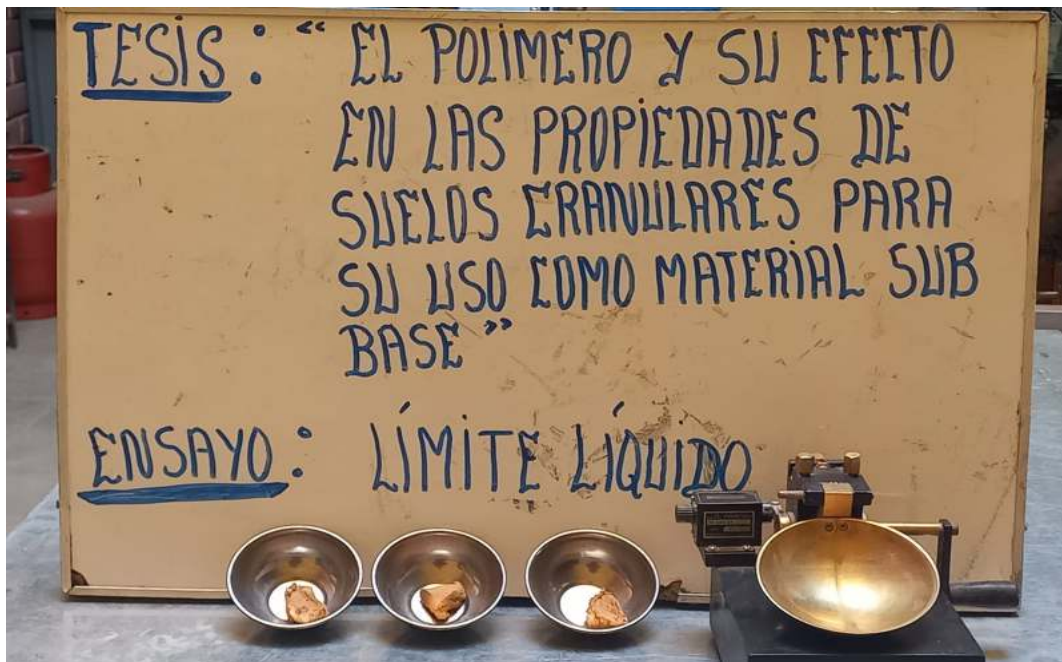 TESIS: “ EL POLIMERO Y SU EFECTO
EN LAS PROPIEDADES DE
SUELOS GRANULARES PARA
SU USO COMO MATERIAL SUB
BASE ”
ENSAYO: LÍMITE LÍQUIDO